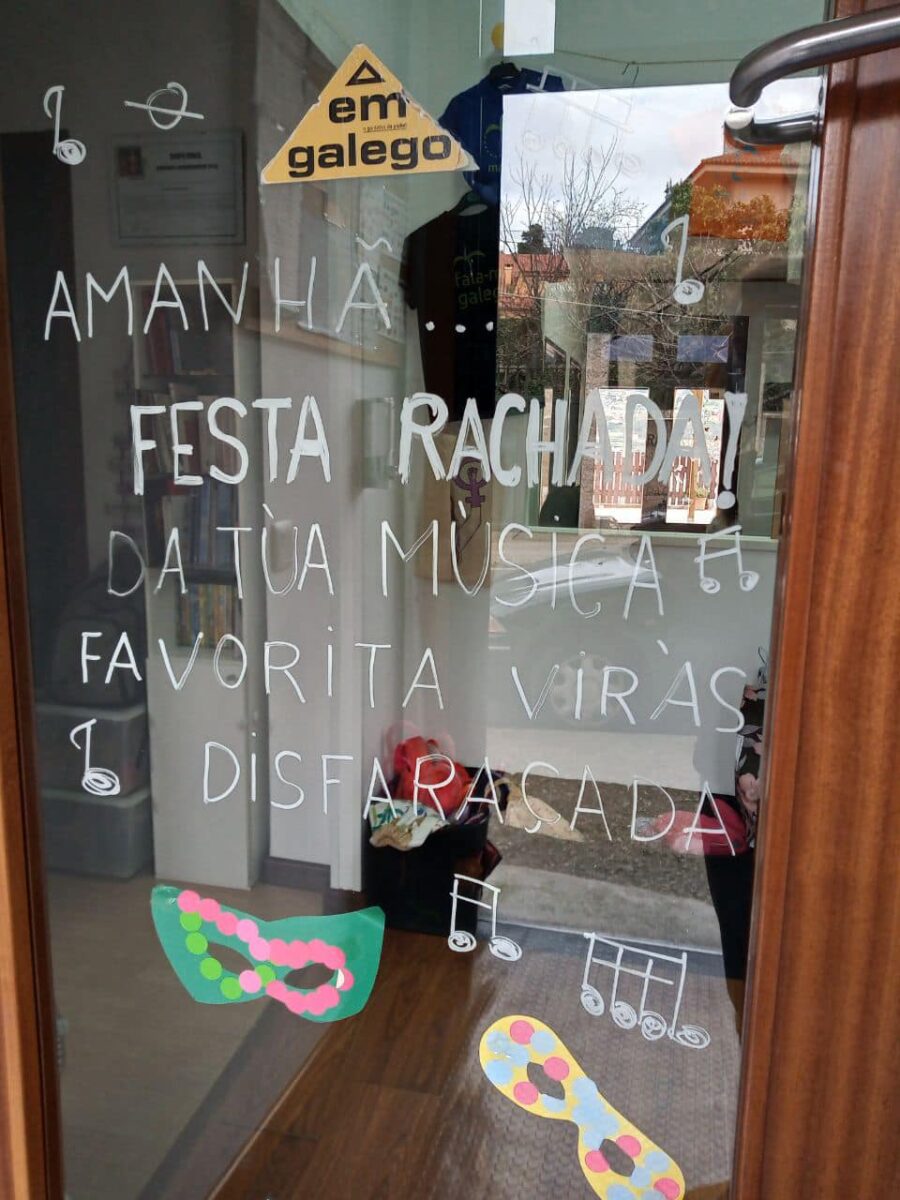 em
galego
AMANHÃ....
FESTA RACHADA!
DA TÙA MÙSICA
FAVORITA VIRÀS
DISFARAÇADA
fala-m
galeg